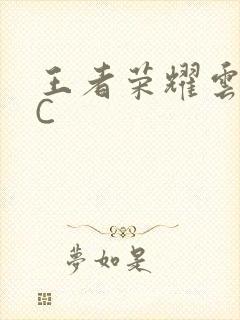 王者荣耀雲
C
夢如是